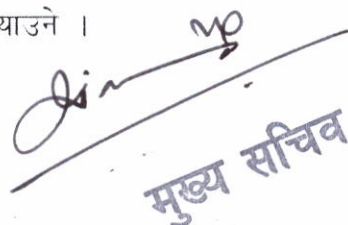 याउने ।
मुख्य सचिव